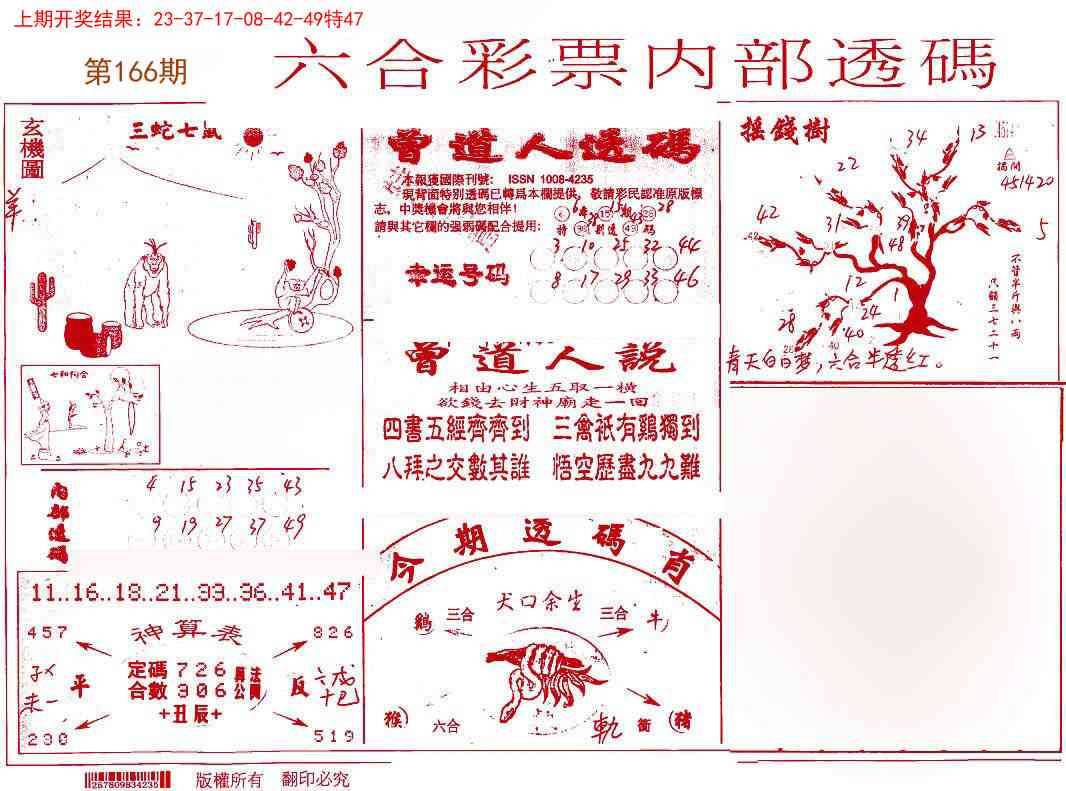 上期开奖结果：23-37-17-08-42-49特47
第166期
六合彩票内部透碼
玄機圖
三蛇七鼠
羊
七和阿合
内部透碼
4 15 23 35 43
9 19 27 37 49
11..16..18..21..33..36..41..47
457
神算表
826
定碼 726
合數 306
平
反
+丑辰+
230
519
曾道人透碼
本報獲國際刊號： ISSN 1008-4235
現背面特别透碼已轉爲本欄提供，敬請彩民認准原版標
志，中獎機會將與您相伴！
請與其它欄的强弱碼配合提用：
3 10 25 32 44
幸运号码
8 17 29 33 46
曾道人説
相由心生五取一橫
欲錢去財神廟走一回
四書五經齊齊到 三禽衹有鷄獨到
八拜之交數其誰 悟空歷盡九九難
今期透碼肖
犬口余生
鷄 三合
三合 牛
猴 六合
衝 豬
搖錢樹
34
13
22
451420
42
31
39
48
5
12
1
28
24
40
不管半斤與八兩
青天白日梦，六合半透红。
267809834235
版權所有 翻印必究